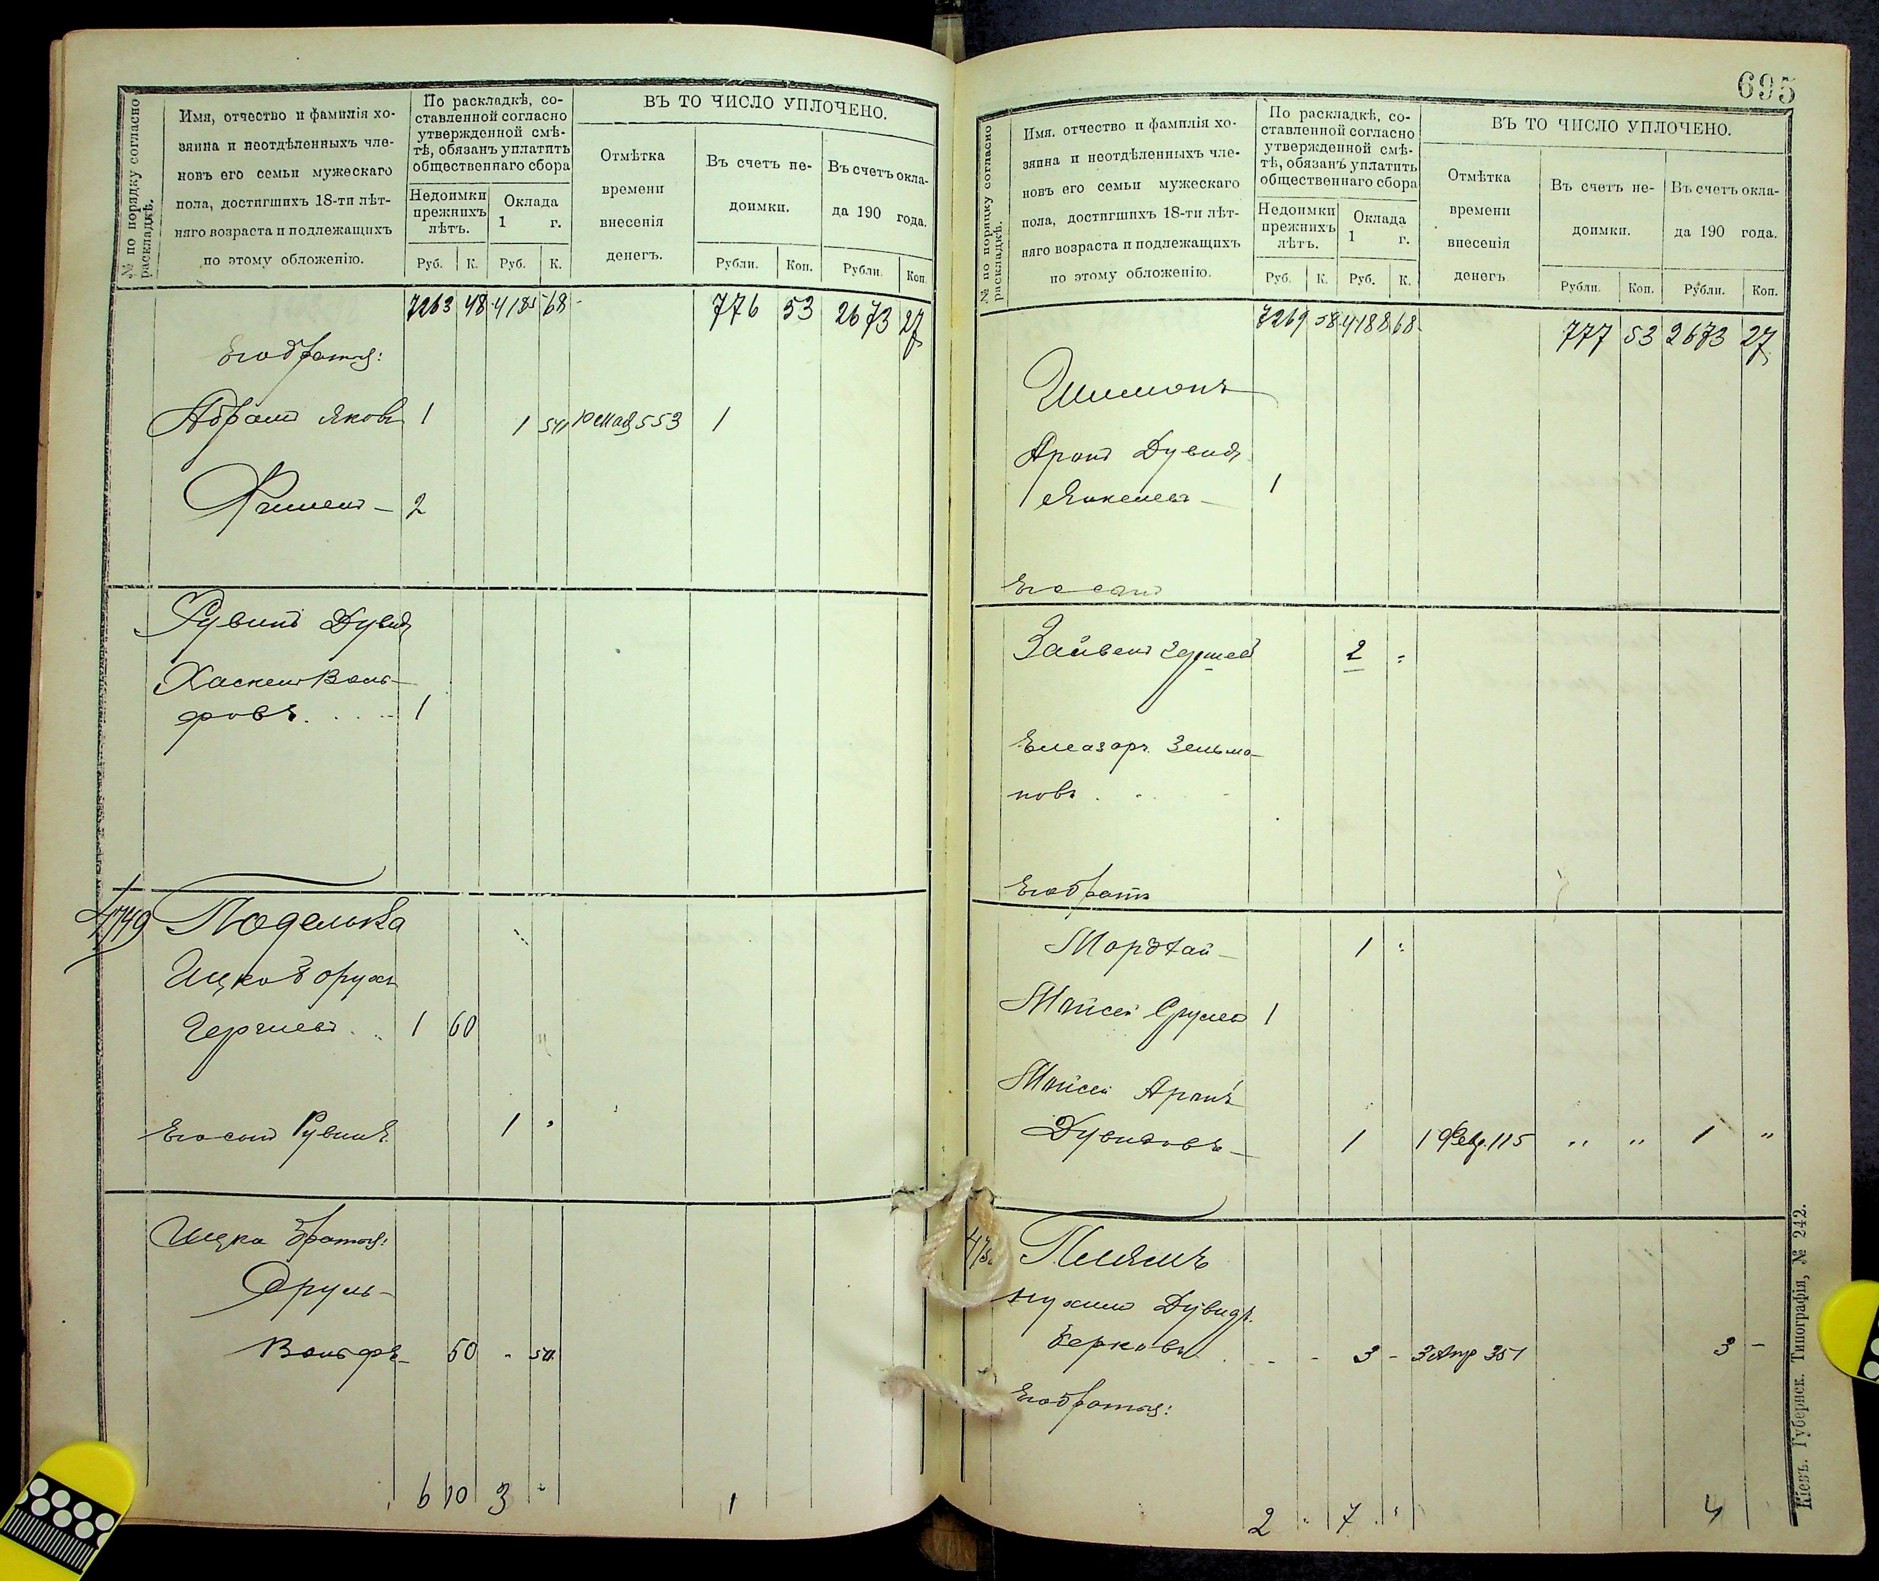 № по порядку согласно раскладкѣ.
Имя, отчество и фамилія хо-
зяина и неотдѣленныхъ чле-
новъ его семьи мужескаго
пола, достигшихъ 18-ти лѣт-
няго возраста и подлежащихъ
по этому обложенію.
По раскладкѣ, со-
ставленной согласно
утвержденной смѣ-
тѣ, обязанъ уплатить
общественнаго сбора
Недоимки
прежнихъ
лѣтъ.
Оклада
1 г.
Руб. К. Руб. К.
ВЪ ТО ЧИСЛО УПЛОЧЕНО.
Отмѣтка
времени
внесенія
денегъ.
Въ счетъ не-
доимки.
Въ счетъ окла-
да 190 года.
Рубли. Коп. Рубли. Коп.
7263 48 4185 68 776 53 2673 27
Его братья:
Абрамъ Яковъ 1 1 553 1
2
Рувинъ Дувидъ
Хаскель Воль-
фовъ 1
4749 Поделька
Ицко Борухъ
Гершевъ 1 60
Его сынъ Рувинъ 1
Ицка братья:
Сруль
Вольфъ 50
6 10 3 1
695
№ по порядку согласно раскладкѣ.
Имя, отчество и фамилія хо-
зяина и неотдѣленныхъ чле-
новъ его семьи мужескаго
пола, достигшихъ 18-ти лѣт-
няго возраста и подлежащихъ
по этому обложенію.
По раскладкѣ, со-
ставленной согласно
утвержденной смѣ-
тѣ, обязанъ уплатить
общественнаго сбора
Недоимки
прежнихъ
лѣтъ.
Оклада
1 г.
Руб. К. Руб. К.
ВЪ ТО ЧИСЛО УПЛОЧЕНО.
Отмѣтка
времени
внесенія
денегъ
Въ счетъ не-
доимки.
Въ счетъ окла-
да 190 года.
Рубли. Коп. Рубли. Коп.
7269 58 4188 68 777 53 2673 27
Шимонъ
Аронъ Дувидъ
Янкелевъ 1
Его сынъ
Зайвель Гершевъ 2
Елеазаръ Зельма-
новъ
Его братъ
Мордхай 1
Мойсей Срулевъ 1
Мойсей Аронъ
Дувидовъ 1 1 Февр. 115 " " 1 "
Плямъ
Нухимъ Дувидъ
Берковъ 3 - 3 Апр 351 3 -
Его братья:
2 7 4
Кіевъ. Губернск. Типографія, № 242.